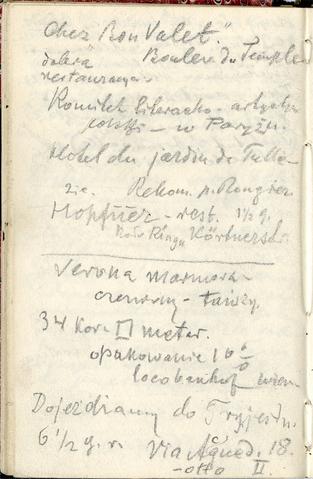 Chez Bon Valet."
dobra Boulev. du Temple
restauracya -
Komitet literacko - artysty.
polski - w Paryżu.
Hotel du jardin de Tuile-
rie. Rekom. p. Rongier
Hopfner - rest. 1 1/2 g.
Kärtnerstr.
Verona marmora -
czerwony - tańszy.
34 Kor □ meter.
opakowanie 10 %
loco banhof wien
Dojeżdżamy do Tryjestu.
6 1/2 g. r. Via Aqued. 18.
- otto II.